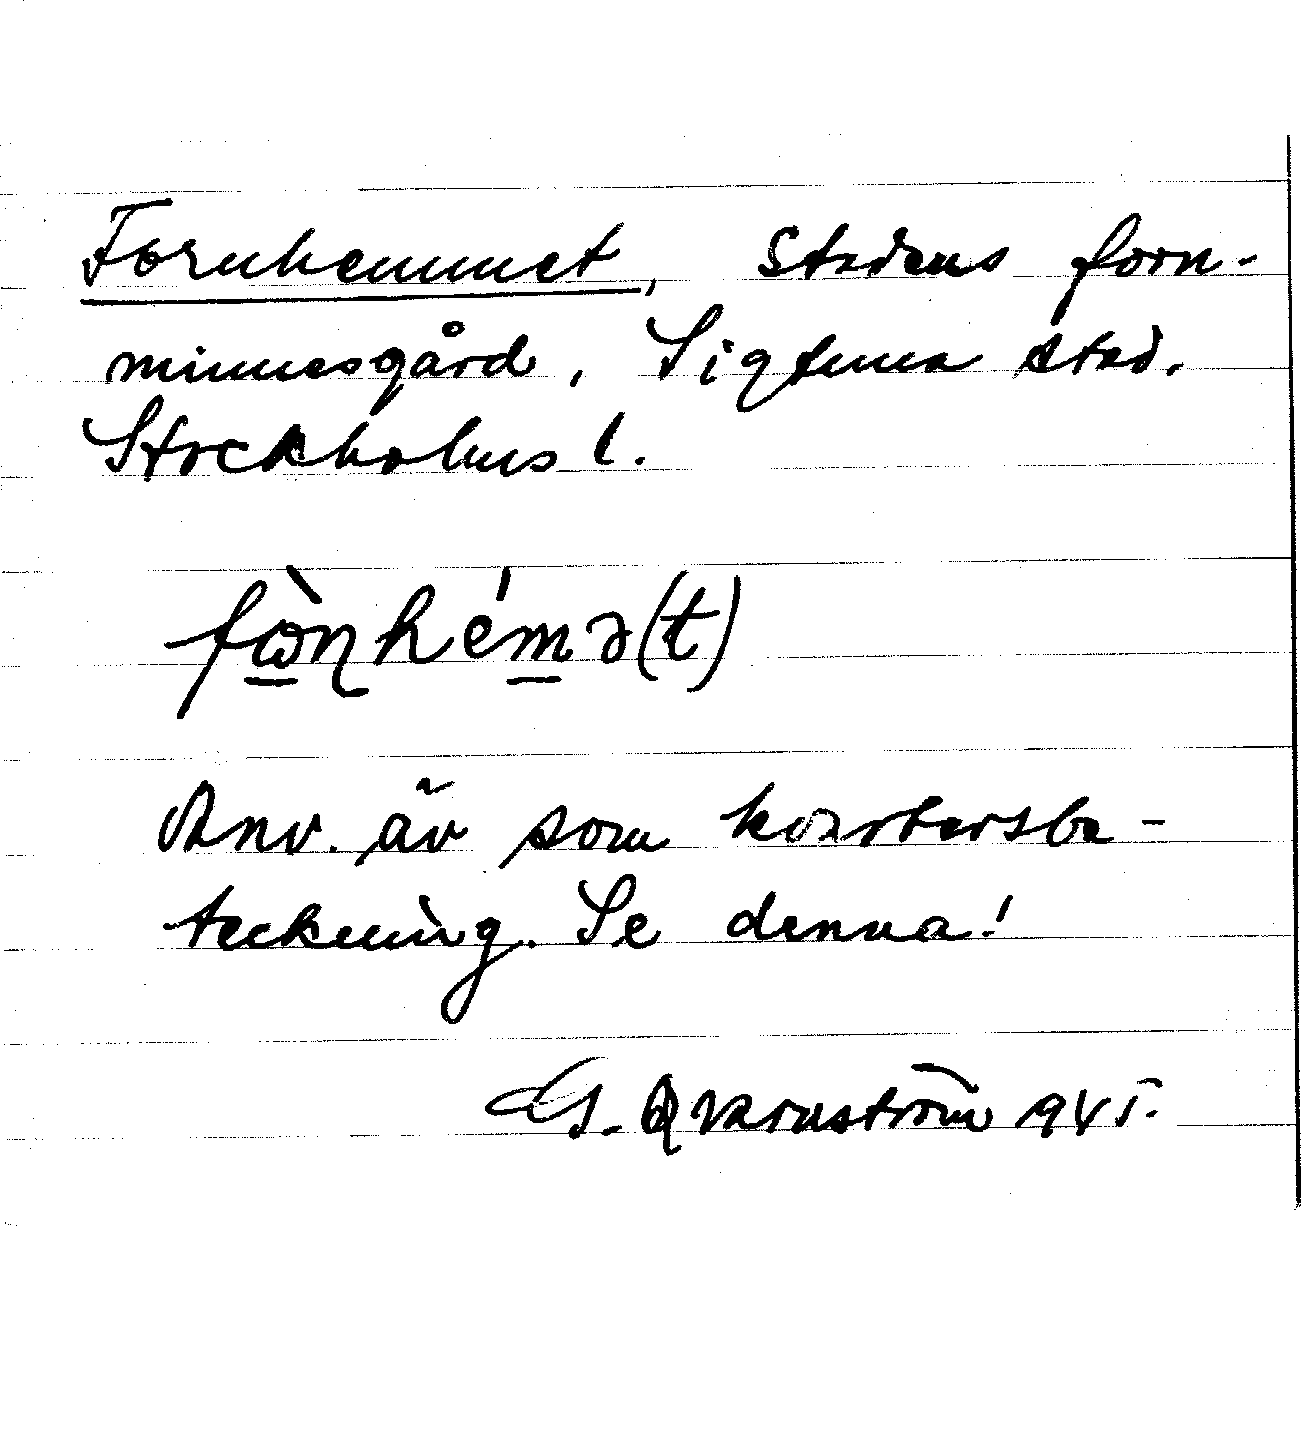 Fornhemmet, stadens forn-
minnesgård, Sigtuna stad.
Stockholms l.
fὼn̨hémə(t)
Anv. äv som kvartersbe-
teckning. Se denna!
G. Qvarnström 1945.